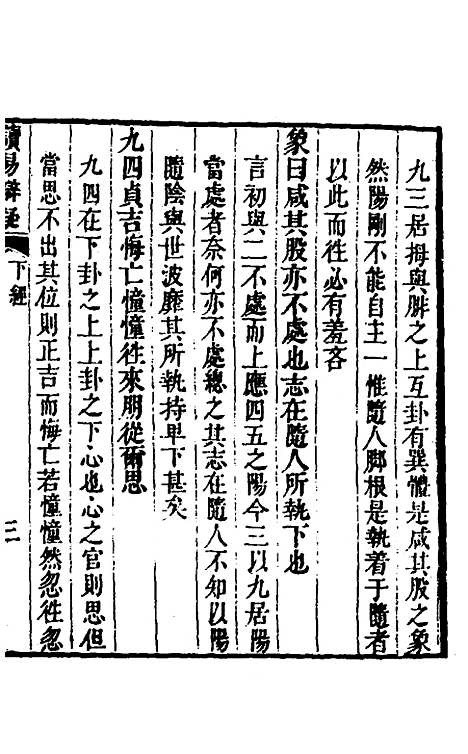 九三居拇與腓之上互卦有巽體是咸其股之象
然陽剛不能自主一惟隨人脚根是執着于隨者
以此而徃必有羞吝
象曰咸其股亦不處也志在隨人所執下也
言初與二不處而上應四五之陽今三以九居陽
當處者奈何亦不處總之其志在隨人不知以陽
隨陰與世波靡其所執持卑下甚矣
九四貞吉悔亡憧憧徃來朋從爾思
九四在下卦之上上卦之下心也心之官則思但
當思不出其位則正吉而悔亡若憧憧然忽徃忽
讀易辯疑
下經
三